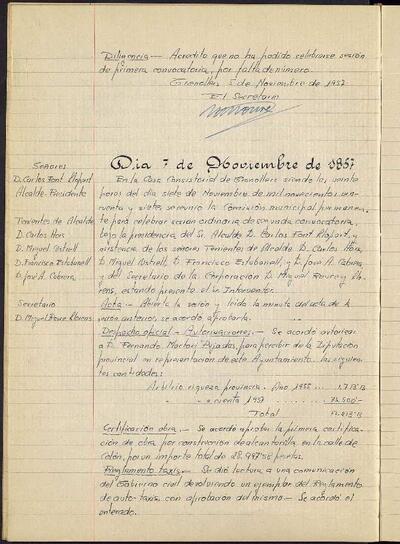 Diligencia.— Acredito que no ha podido celebrarse sesión
de primera convocatoria, por falta de número.
Granollers 5 de Noviembre de 1957
El Secretario
Señores
D. Carlos Font Llopart
Alcalde-Presidente
Tenientes de Alcalde
D. Carlos Hors
D. Miguel
D. Francisco Estabanell
D. José A. Cabrera
Secretario
D. Miguel Roure Llorens
Dia 7 de Noviembre de 1957
En la Casa Consistorial de Granollers siendo las veinte
horas del día siete de Noviembre de mil novecientos cin-
cuenta y siete, se reunió la Comisión municipal permanen-
te para celebrar sesión ordinaria de segunda convocatoria,
bajo la presidencia del Sr. Alcalde D. Carlos Font Llopart, y
asistencia de los señores Tenientes de Alcalde D. Carlos Hors,
D. Miguel D. Francisco Estabanell, y D. José A. Cabrera,
y del Secretario de la Corporación D. Miguel Roure y Llo-
rens, estando presente el sr. Interventor.
Acta.— Abierta la sesión y leída la minuta del acta de la
sesión anterior, se acordó aprobarla.
Despacho oficial - Autorizaciones.— Se acordó autorizar
a D. Fernando Pujadas, para percibir de la Diputación
provincial en representación de este Ayuntamiento las siguien-
tes cantidades:
Arbitrio riqueza provincia.- Año 1955
" " a cuenta 1957 72.500'—
Total
Certificación obra.— Se acordó aprobar la primera certifica-
ción de obra por construcción de alcantarilla en la calle de
Colón, por un importe total de 28.997'58 pesetas.
Reglamento taxis.— Se dió lectura a una comunicación
del Gobierno civil devolviendo un ejemplar del Reglamento
de auto-taxis con aprobación del mismo.— Se acordó el
enterado.